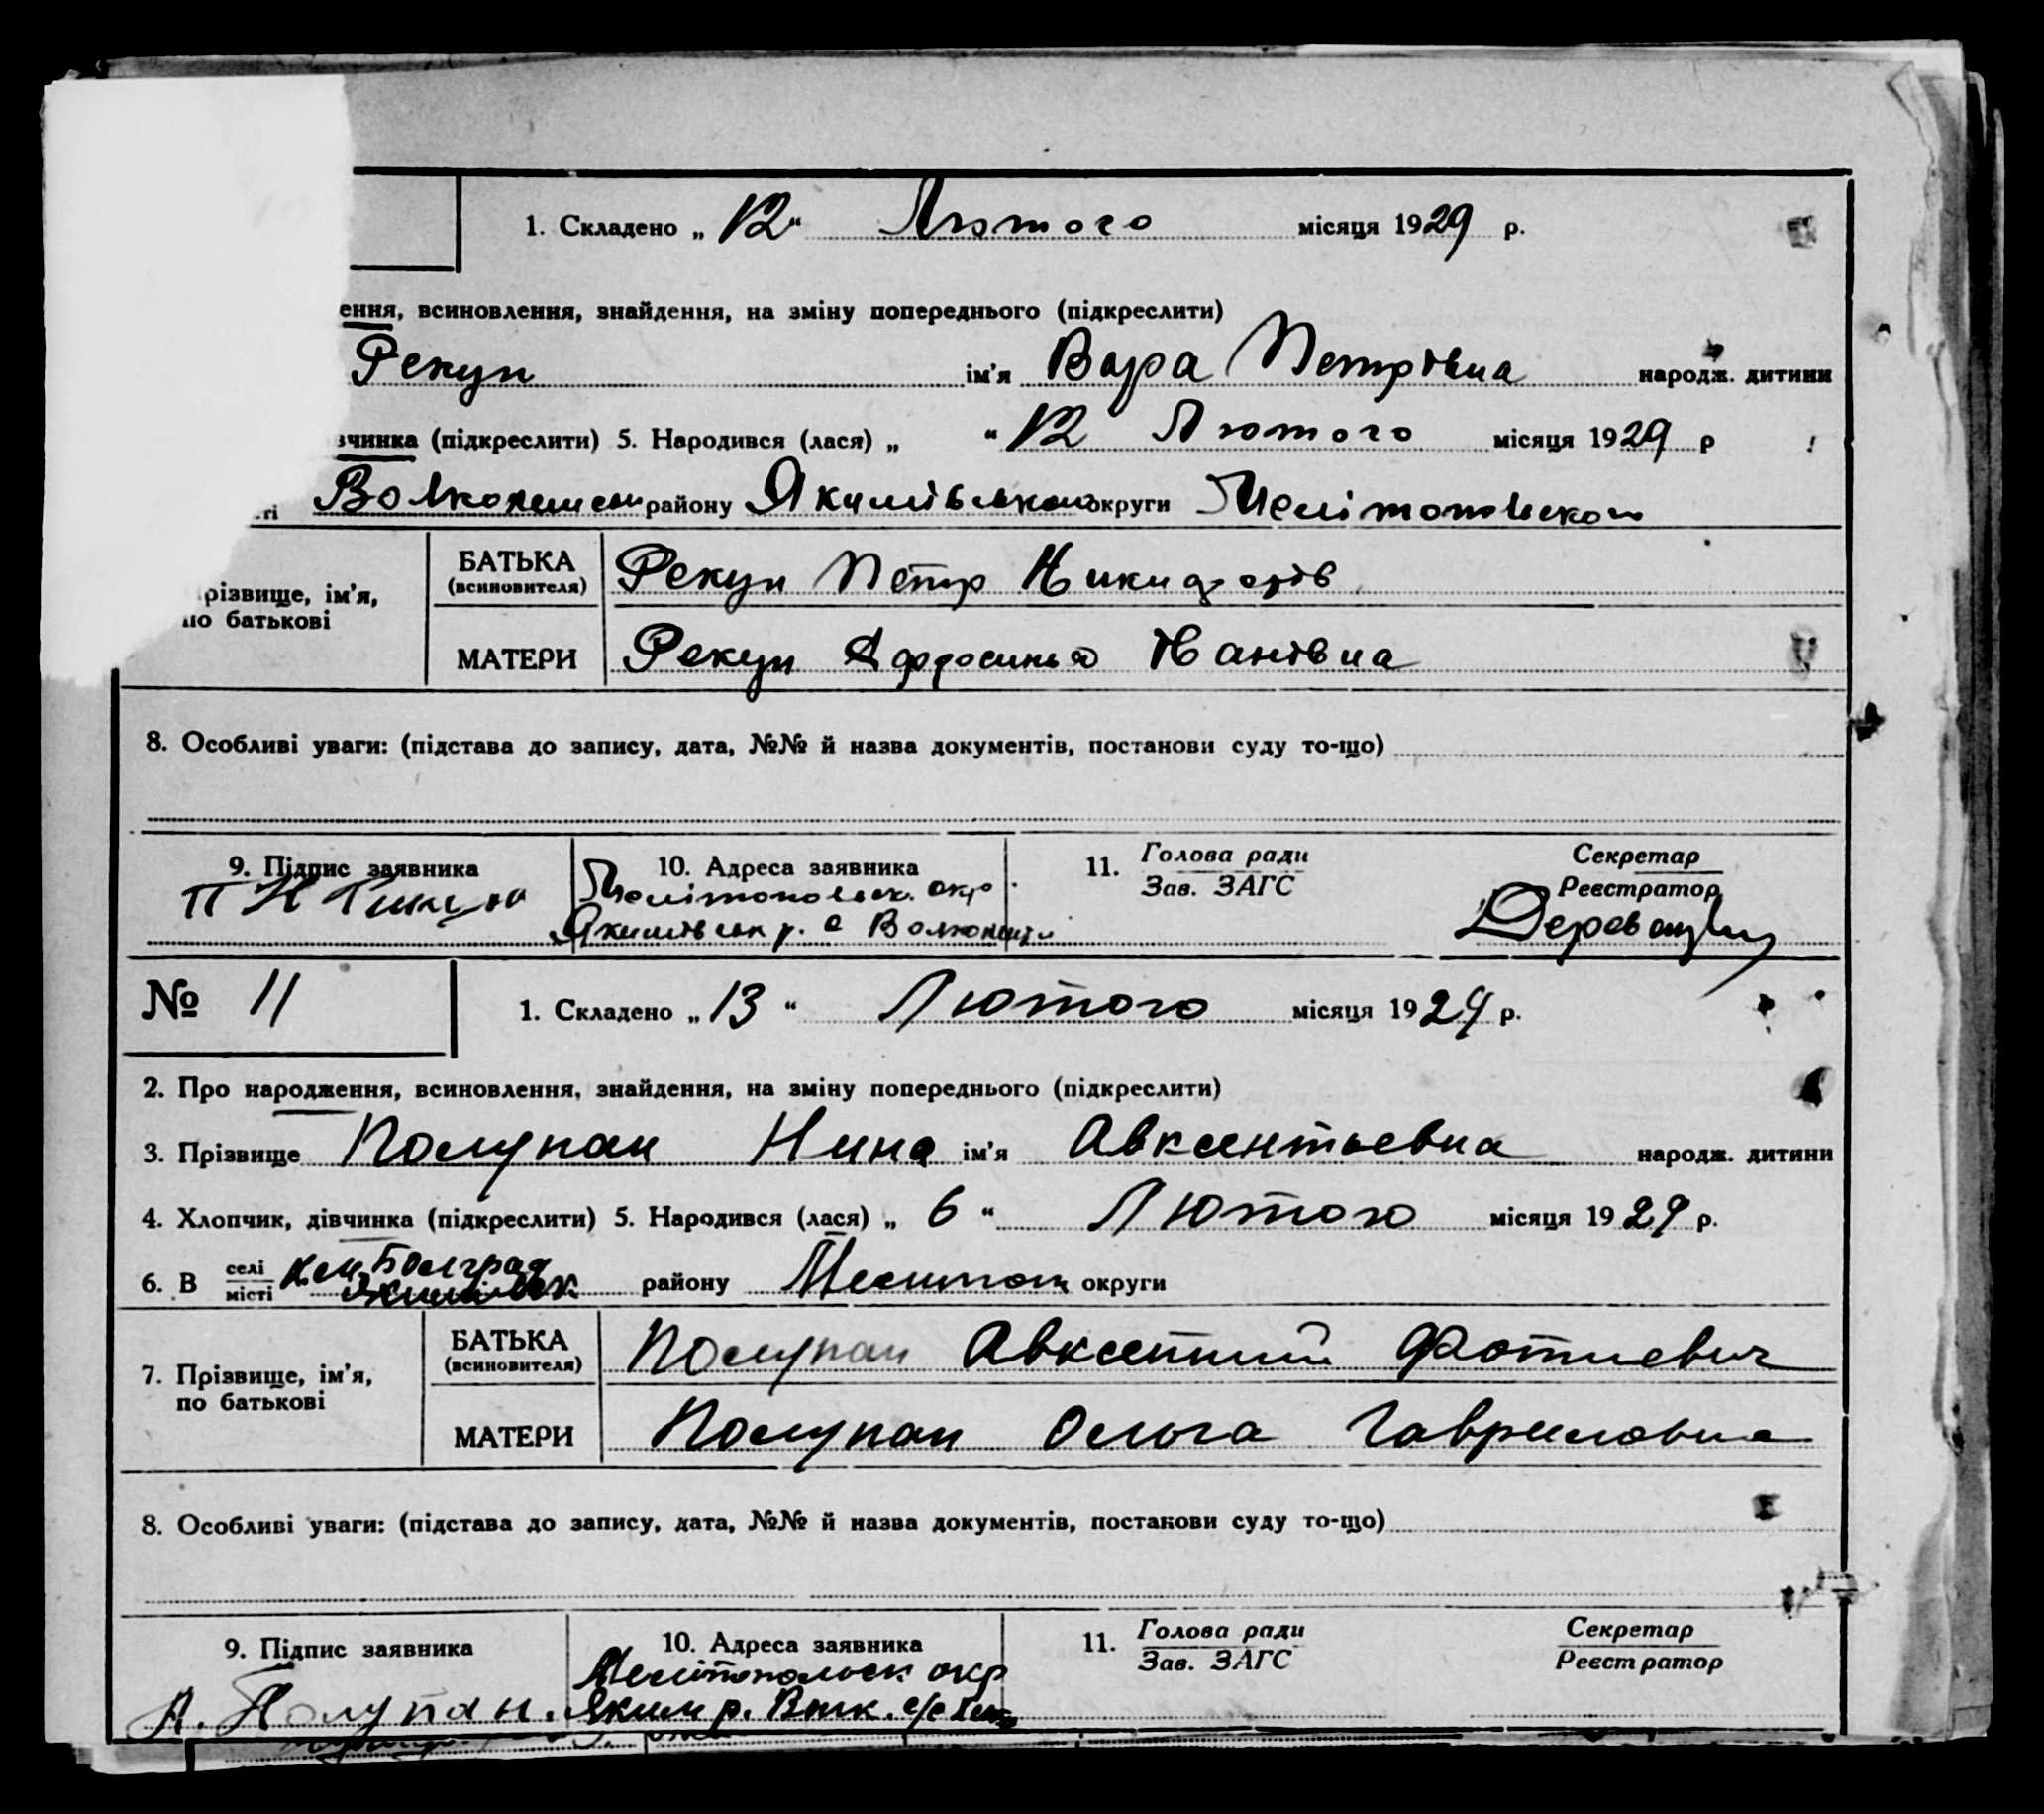 1. Складено „ 12 “ Лютого місяця 1929 р.
ення, всиновлення, знайдення, на зміну попереднього (підкреслити)
Рекун ім'я Вара Петрівна народж. дитини
вчинка (підкреслити) 5. Народився (лася) „ “ 12 Лютого місяця 1929 р
ті району Якимівського округи Мелітопольської
різвище, ім'я,
по батькові
БАТЬКА
(всиновителя)
Рекун Петр
МАТЕРИ
Рекун
8. Особливі уваги: (підстава до запису, дата, №№ й назва документів, постанови суду то-що)
9. Підпис заявника
П Н
10. Адреса заявника
Мелітопольск. окр.
Якимівськ р. с
11. Голова ради
Зав. ЗАГС
Секретар
Реєстратор
№ 11
1. Складено „ 13 “ Лютого місяця 1929 р.
2. Про народження, всиновлення, знайдення, на зміну попереднього (підкреслити)
3. Прізвище Полупан Нина ім'я Авксентьевна народж. дитини
4. Хлопчик, дівчинка (підкреслити) 5. Народився (лася) „ 6 “ Лютого місяця 1929 р.
6. В селі
місті
Болград
району Мелитоп округи
7. Прізвище, ім'я,
по батькові
БАТЬКА
(всиновителя)
Полупан Авксентий Фотиевич
МАТЕРИ
Полупан Ольга Гавриловна
8. Особливі уваги: (підстава до запису, дата, №№ й назва документів, постанови суду то-що)
9. Підпис заявника
А. Полупан.
10. Адреса заявника
Мелітопольськ окр
Яким р. с/с
11. Голова ради
Зав. ЗАГС
Секретар
Реєстратор